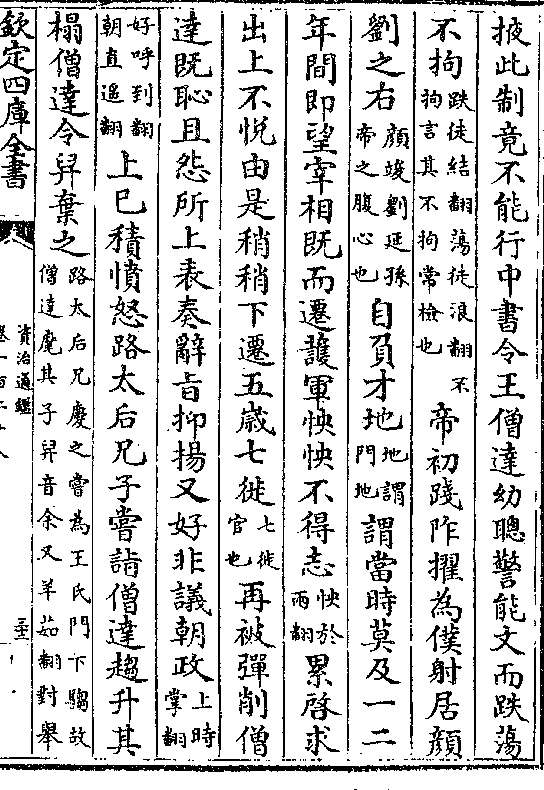 掖此制竟不能行中書令王僧達幼聰警能文而跌蕩
不拘跌徒結翻蕩徒浪翻不拘言其不拘常檢也帝初踐阼擢為僕射居顔
劉之右顔竣劉延孫帝之腹心也自負才地地謂門地謂當時莫及一二
年間即望宰相既而遷護軍怏怏不得志怏於兩翻累啓求
出上不悦由是稍稍下遷五歳七徙七徙官也再被彈削僧
達既恥且怨所上表奏辭旨抑揚又好非議朝政上時掌翻
好呼到翻朝直遥翻上已積憤怒路太后兄子嘗詣僧達趨升其
榻僧達令舁棄之路太后兄慶之嘗為王氏門下騶故僧達麾其子舁音余又羊茹翻對舉
欽定四庫全書
資治通鑑